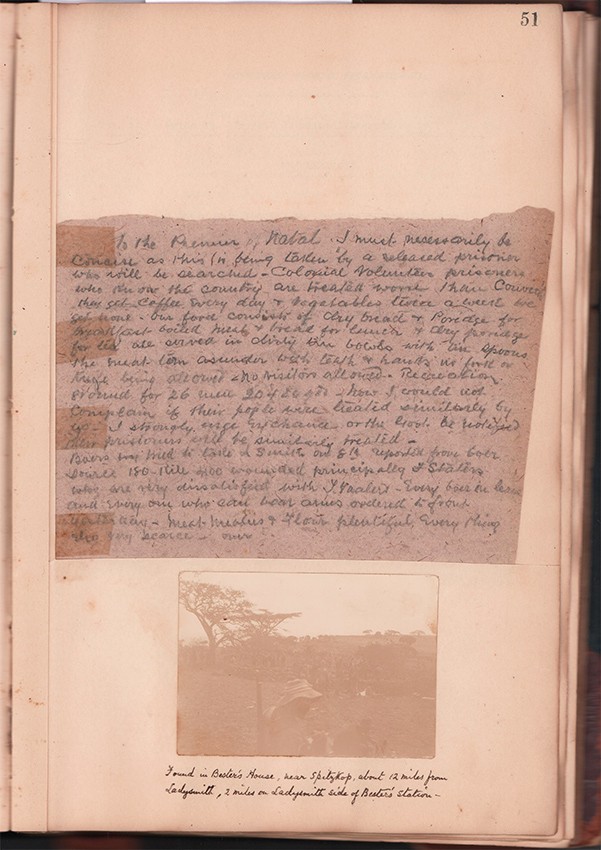 51
To the Premier, Natal, I must necessarily be
Concise as this is being taken by a released prisoner
who will be searched - Colonial Volunteer prisoners
who know the country are treated worse than Convicts
they get Coffee every day & vegetables twice a week we
get none - our food consists of dry bread & Poridge for
breakfast boiled meat & bread for lunch & dry poridge
for tea all served in dirty tin bowls with tin spoons
the meat torn asunder with teeth & hands no fork or
Knife being allowed - No visitors allowed - Recreation
Ground for 26 men - Now I would not
Complain if their people were treated similarly by
us - I strongly urge exchange, or the Govt be notified
their prisoners will be similarly treated -
Boers tried to take on 8th reported from boer
Source 180 Killed wounded principally F Staters
who are very dissatisfied with - Every boer on leave
and every one who can bear arms ordered to front
yesterday - Meat Mealies & Flour plentiful, Every thing
else very scarce - over
Found in Bester's House, near Spitzkop, about 12 miles from
Ladysmith, 2 miles on Ladysmith side of Bester's Station -